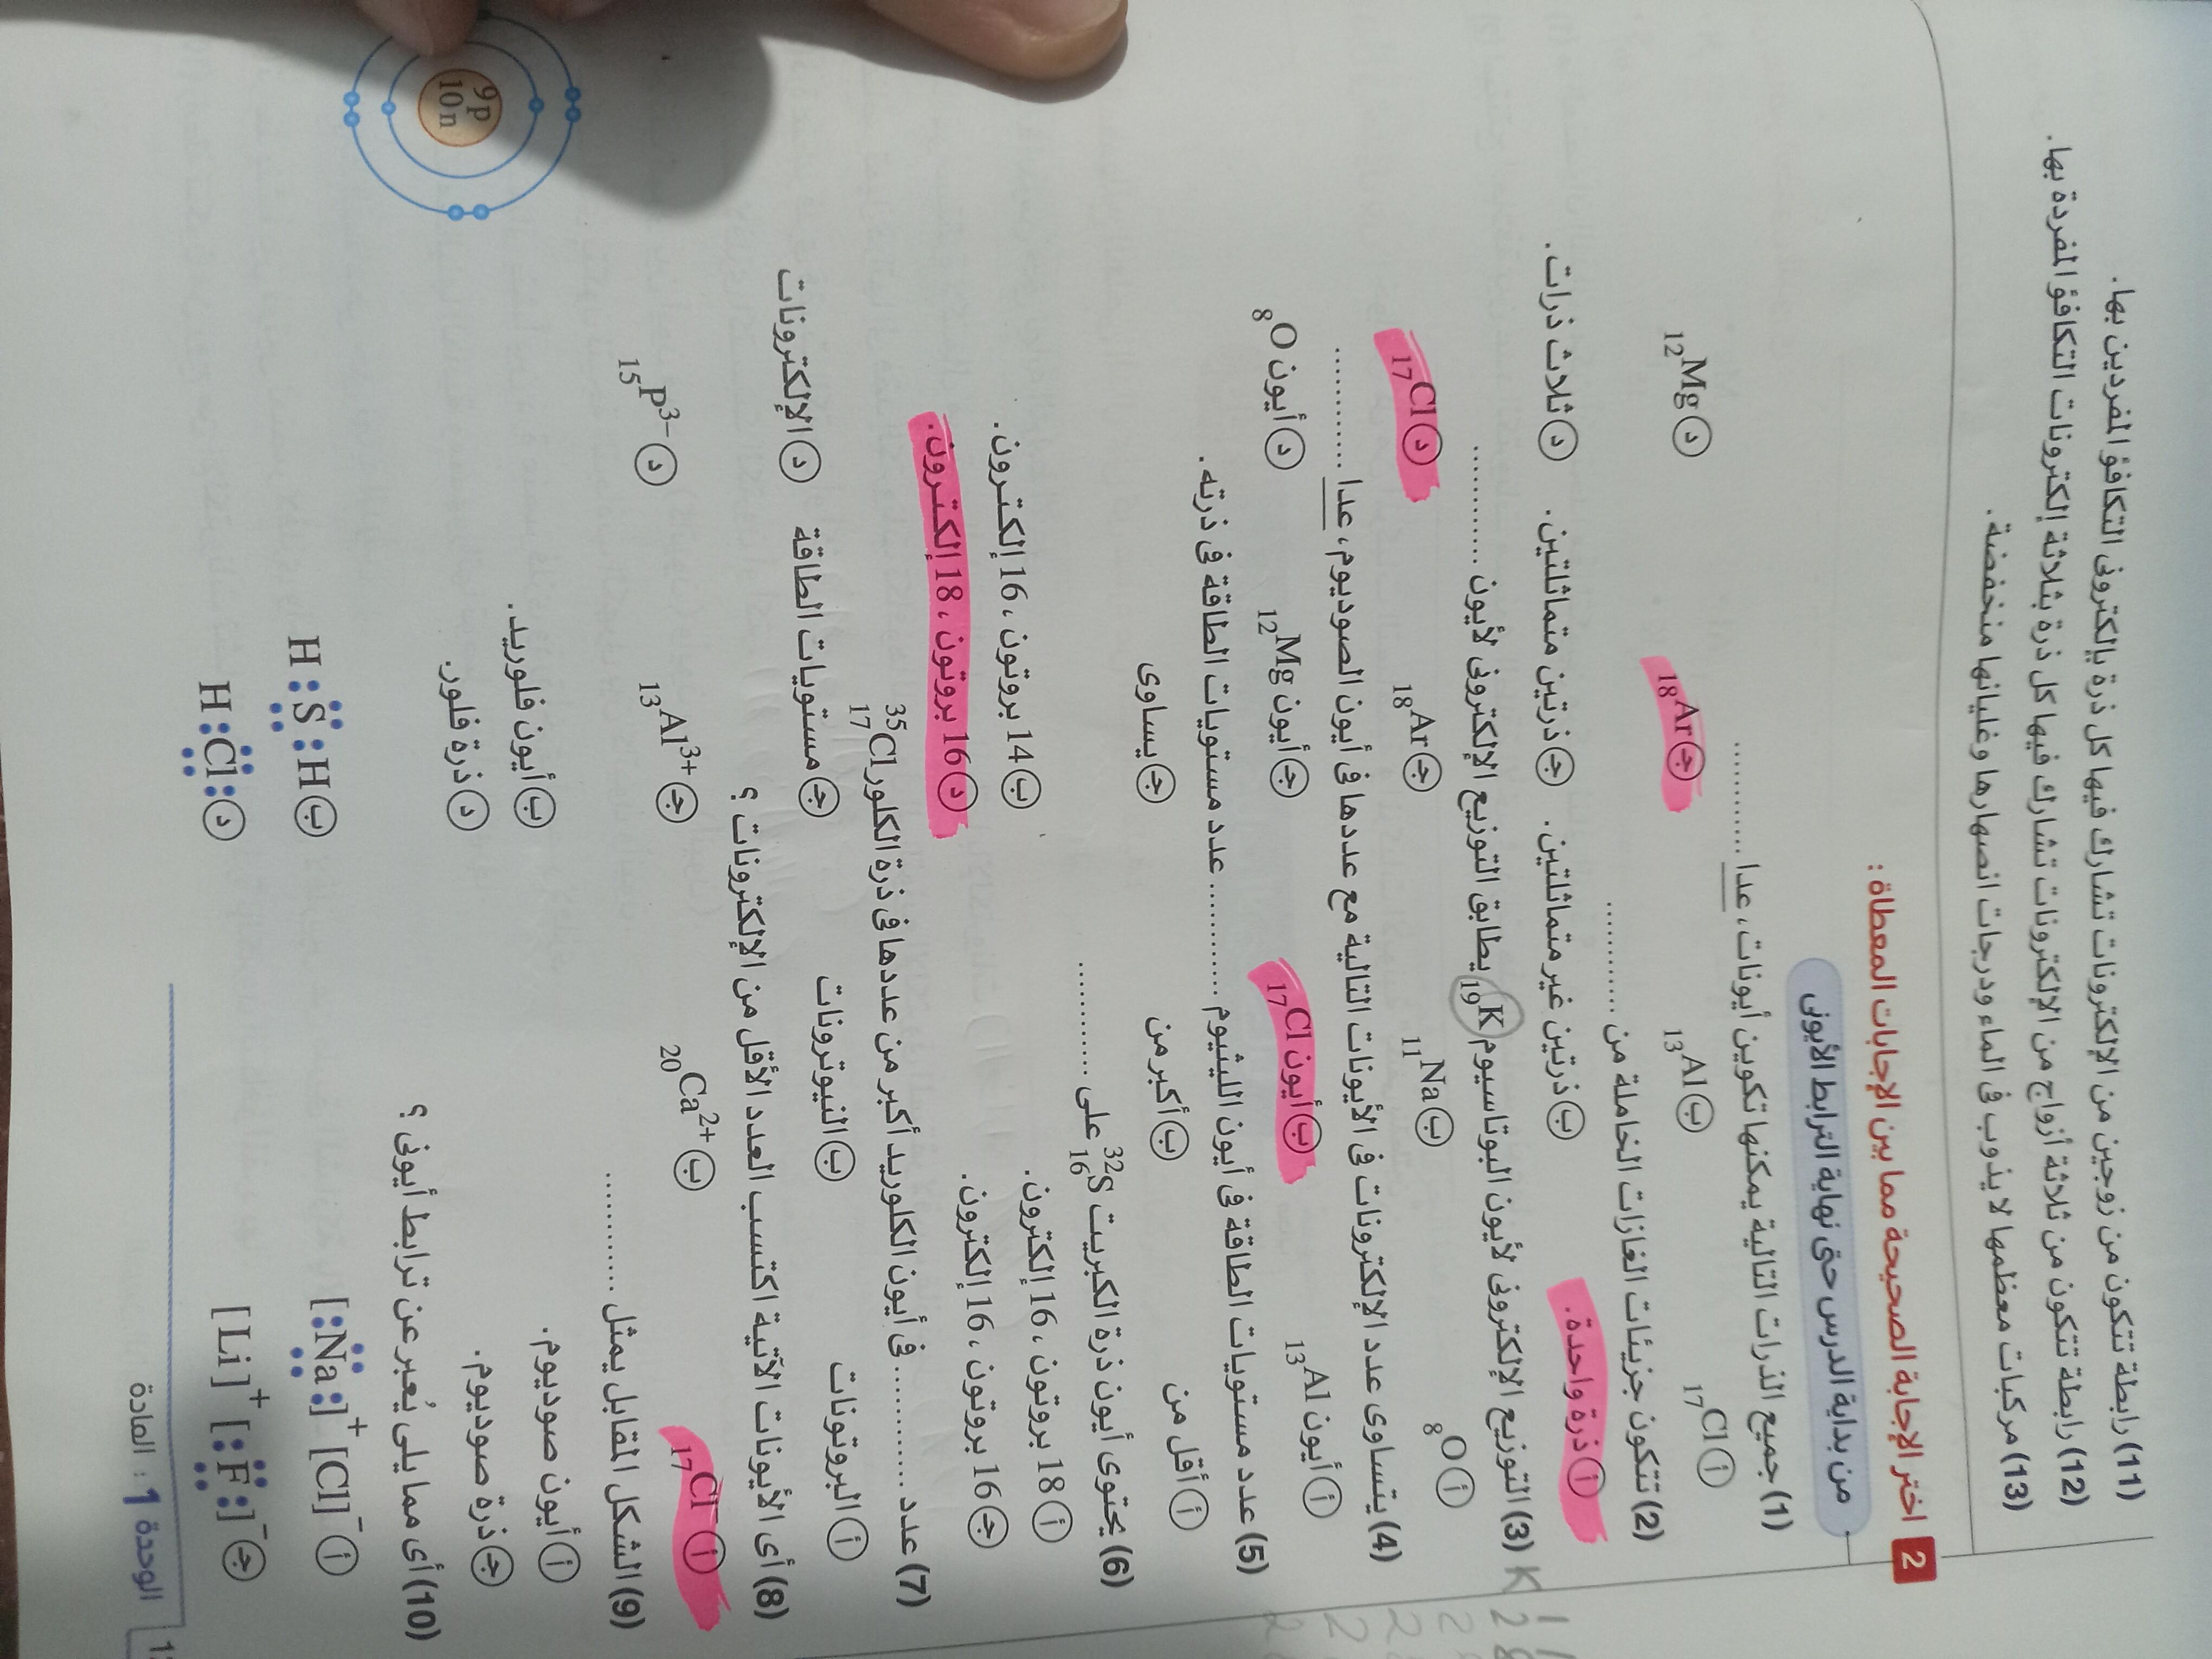 (11) رابطة تتكون من زوجين من الإلكترونات تشارك فيها كل ذرة بإلكترونى التكافؤ المفردين بها.
(12) رابطة تتكون من ثلاثة أزواج من الإلكترونات تشارك فيها كل ذرة بثلاثة إلكترونات التكافؤ المفردة بها.
(13) مركبات معظمها لا يذوب فى الماء ودرجات انصهارها وغليانها منخفضة.
2 اختر الإجابة الصحيحة مما بين الإجابات المعطاة :
من بداية الدرس حتى نهاية الترابط الأيونى
(1) جميع الذرات التالية يمكنها تكوين أيونات، عدا ............
أ ₁₇Cl ب ₁₃Al ج ₁₈Ar د ₁₂Mg
(2) تتكون جزيئات الغازات الخاملة من ............
أ ذرة واحدة. ب ذرتين غير متماثلتين. ج ذرتين متماثلتين. د ثلاث ذرات.
(3) التوزيع الإلكترونى لأيون البوتاسيوم ₁₉K يطابق التوزيع الإلكترونى لأيون ............
أ ₈O ب ₁₁Na ج ₁₈Ar د ₁₇Cl
(4) يتساوى عدد الإلكترونات فى الأيونات التالية مع عددها فى أيون الصوديوم، عدا ............
أ أيون ₁₃Al ب أيون ₁₇Cl ج أيون ₁₂Mg د أيون ₈O
(5) عدد مستويات الطاقة فى أيون الليثيوم ............ عدد مستويات الطاقة فى ذرته.
أ أقل من ب أكبر من ج يساوى
(6) يحتوى أيون ذرة الكبريت ³²₁₆S على ............
أ 18 بروتون، 16 إلكترون. ب 14 بروتون، 16 إلكترون.
ج 16 بروتون، 16 إلكترون. د 16 بروتون، 18 إلكترون.
(7) عدد ............ فى أيون الكلوريد أكبر من عددها فى ذرة الكلور ³⁵₁₇Cl
أ البروتونات ب النيوترونات ج مستويات الطاقة د الإلكترونات
(8) أى الأيونات الآتية اكتسب العدد الأقل من الإلكترونات ؟
أ ₁₇Cl⁻ ب ₂₀Ca²⁺ ج ₁₃Al³⁺ د ₁₅P³⁻
(9) الشكل المقابل يمثل ............
أ أيون صوديوم. ب أيون فلوريد.
ج ذرة صوديوم. د ذرة فلور.
9 p
10 n
(10) أى مما يلى يُعبر عن ترابط أيونى ؟
أ [:Na:]⁺ [Cl]⁻ ب H:S:H
ج [Li]⁺ [:F:]⁻ د H:Cl:
الوحدة 1 : المادة